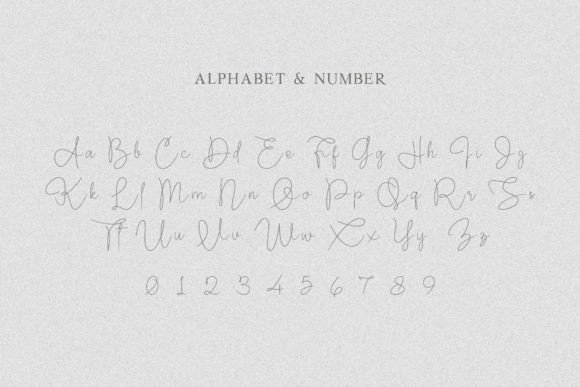 ALPHABET & NUMBER
Aa Bb Cc Dd Ee Ff Gg Hh Ii Jj
Kk Ll Mm Nn Oo Pp Qq Rr Ss
Tt Uu Vv Ww Xx Yy Zz
0 1 2 3 4 5 6 7 8 9